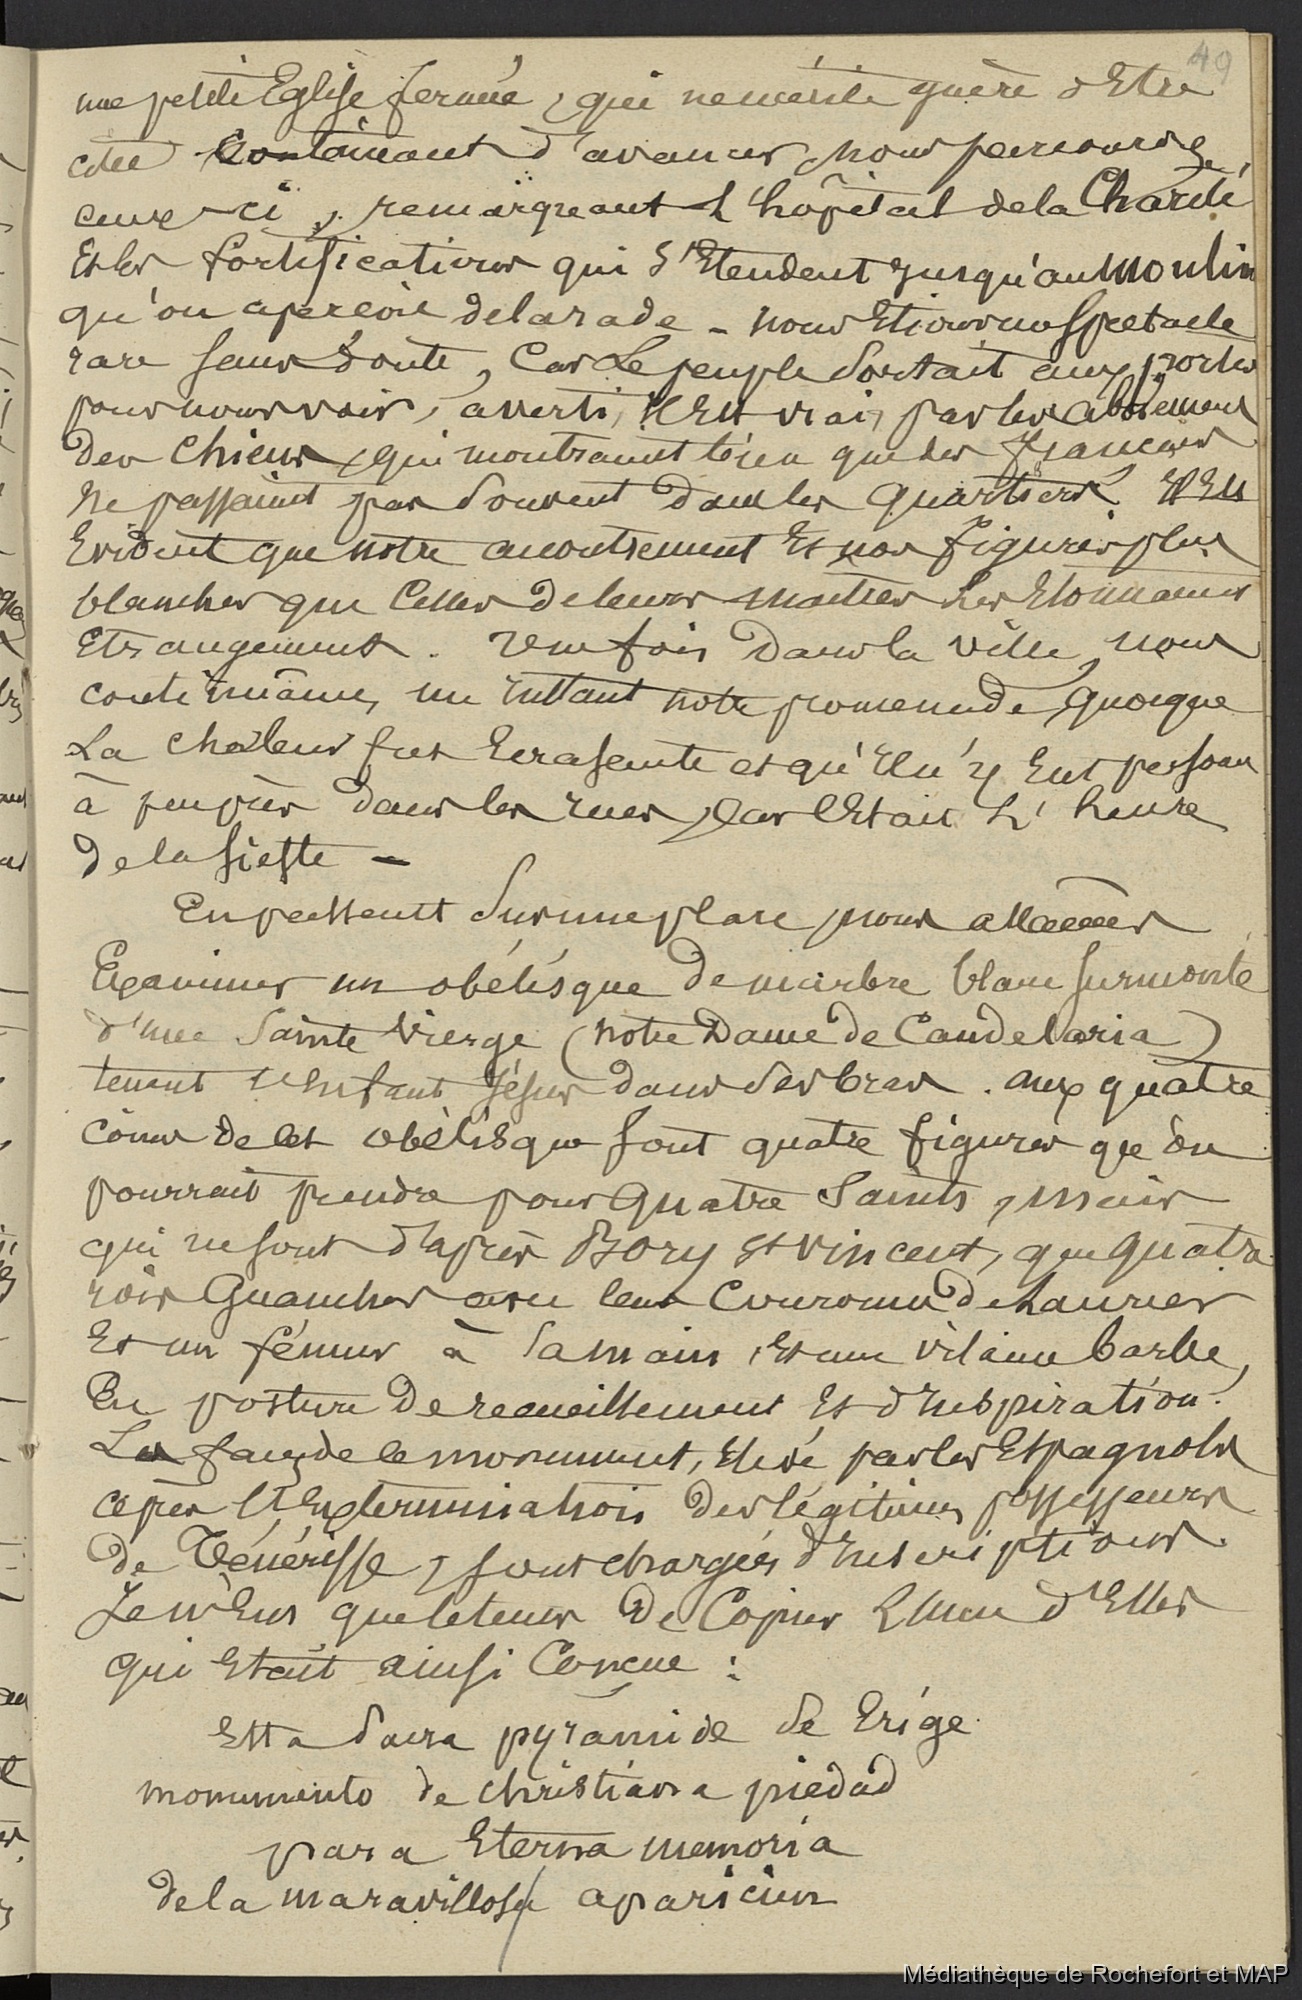 49
une petite Eglise fermée, qui ne mérite guère d'Etre
citée Continuant d'avancer, nous parcourons
ceux-ci, remarquant L'hôpital de la Charité
Et les fortifications qui S'Etendent jusqu'au Moulin
qu'on aperçoit de la rade - nous Etions un Spectacle
rare sans doute, Car Le peuple Sortait aux portes
pour nous voir, averti, il Est vrai, par les aboiements
des Chiens, qui montraient bien que les français
Ne passaient pas Souvent Dans les quartiers. Il Est
Evident que notre accoutrement Et nos figures plus
blanches que Celles de leurs maitres Les Etonnaient
Etrangement. Une fois Dans la ville, nous
continuâmes, un Instant notre promenade, quoique
La chaleur fut Ecrasante et qu'il n'y Eut personne
à peu près dans les rues, Car C'Etait L'heure
De la sieste -
En passant Sur une place, nous allâmes
Examiner un obélisque De marbre blanc surmonté
d'une Sainte Vierge (Notre Dame de Candelaria)
tenant l'Enfant Jésus dans Ses bras. aux quatre
coins de cet obélisque sont quatre figures que l'on
pourrait prendre pour quatre Saints, mais
qui ne sont d'après Bory St Vincent, que quatre
rois Guanches avec leur Couronne De Laurier
Et un fémur à la main, Et une vilaine barbe,
En posture De recueillement Et d'Inspiration.
Les faces de ce monument, Elevé par les Espagnols
après l'Extermination Des légitimes possesseurs
de Ténériffe, sont chargées d'Inscriptions.
Je n'Eus que le temps De Copier L'une d'Elles
qui Etait ainsi Conçue :
Esta Sacra pyramide Se Erige
monumento de christiana piedad
para Eterna memoria
de la maravillosa aparicion
Médiathèque de Rochefort et MAP